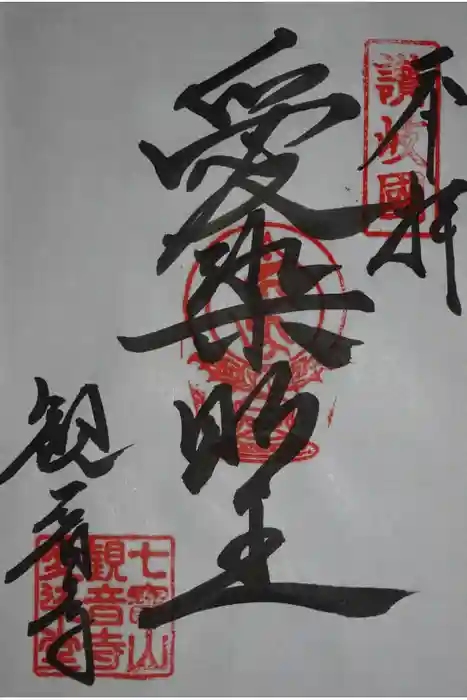 奉拝
讃岐國
愛染明王
観音寺
七寳山
觀音寺